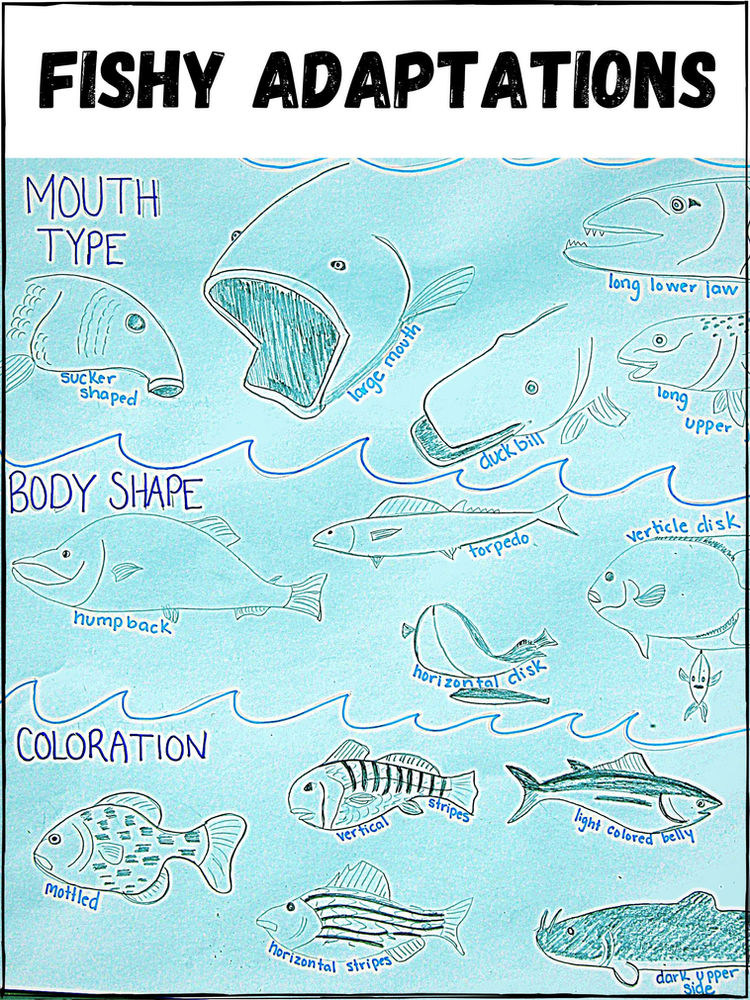 FISHY ADAPTATIONS
MOUTH
TYPE
long lower jaw
sucker
shaped
large mouth
long
upper
duckbill
BODY SHAPE
torpedo
verticle disk
humpback
horizontal disk
COLORATION
vertical
stripes
light colored belly
mottled
horizontal stripes
dark upper
side